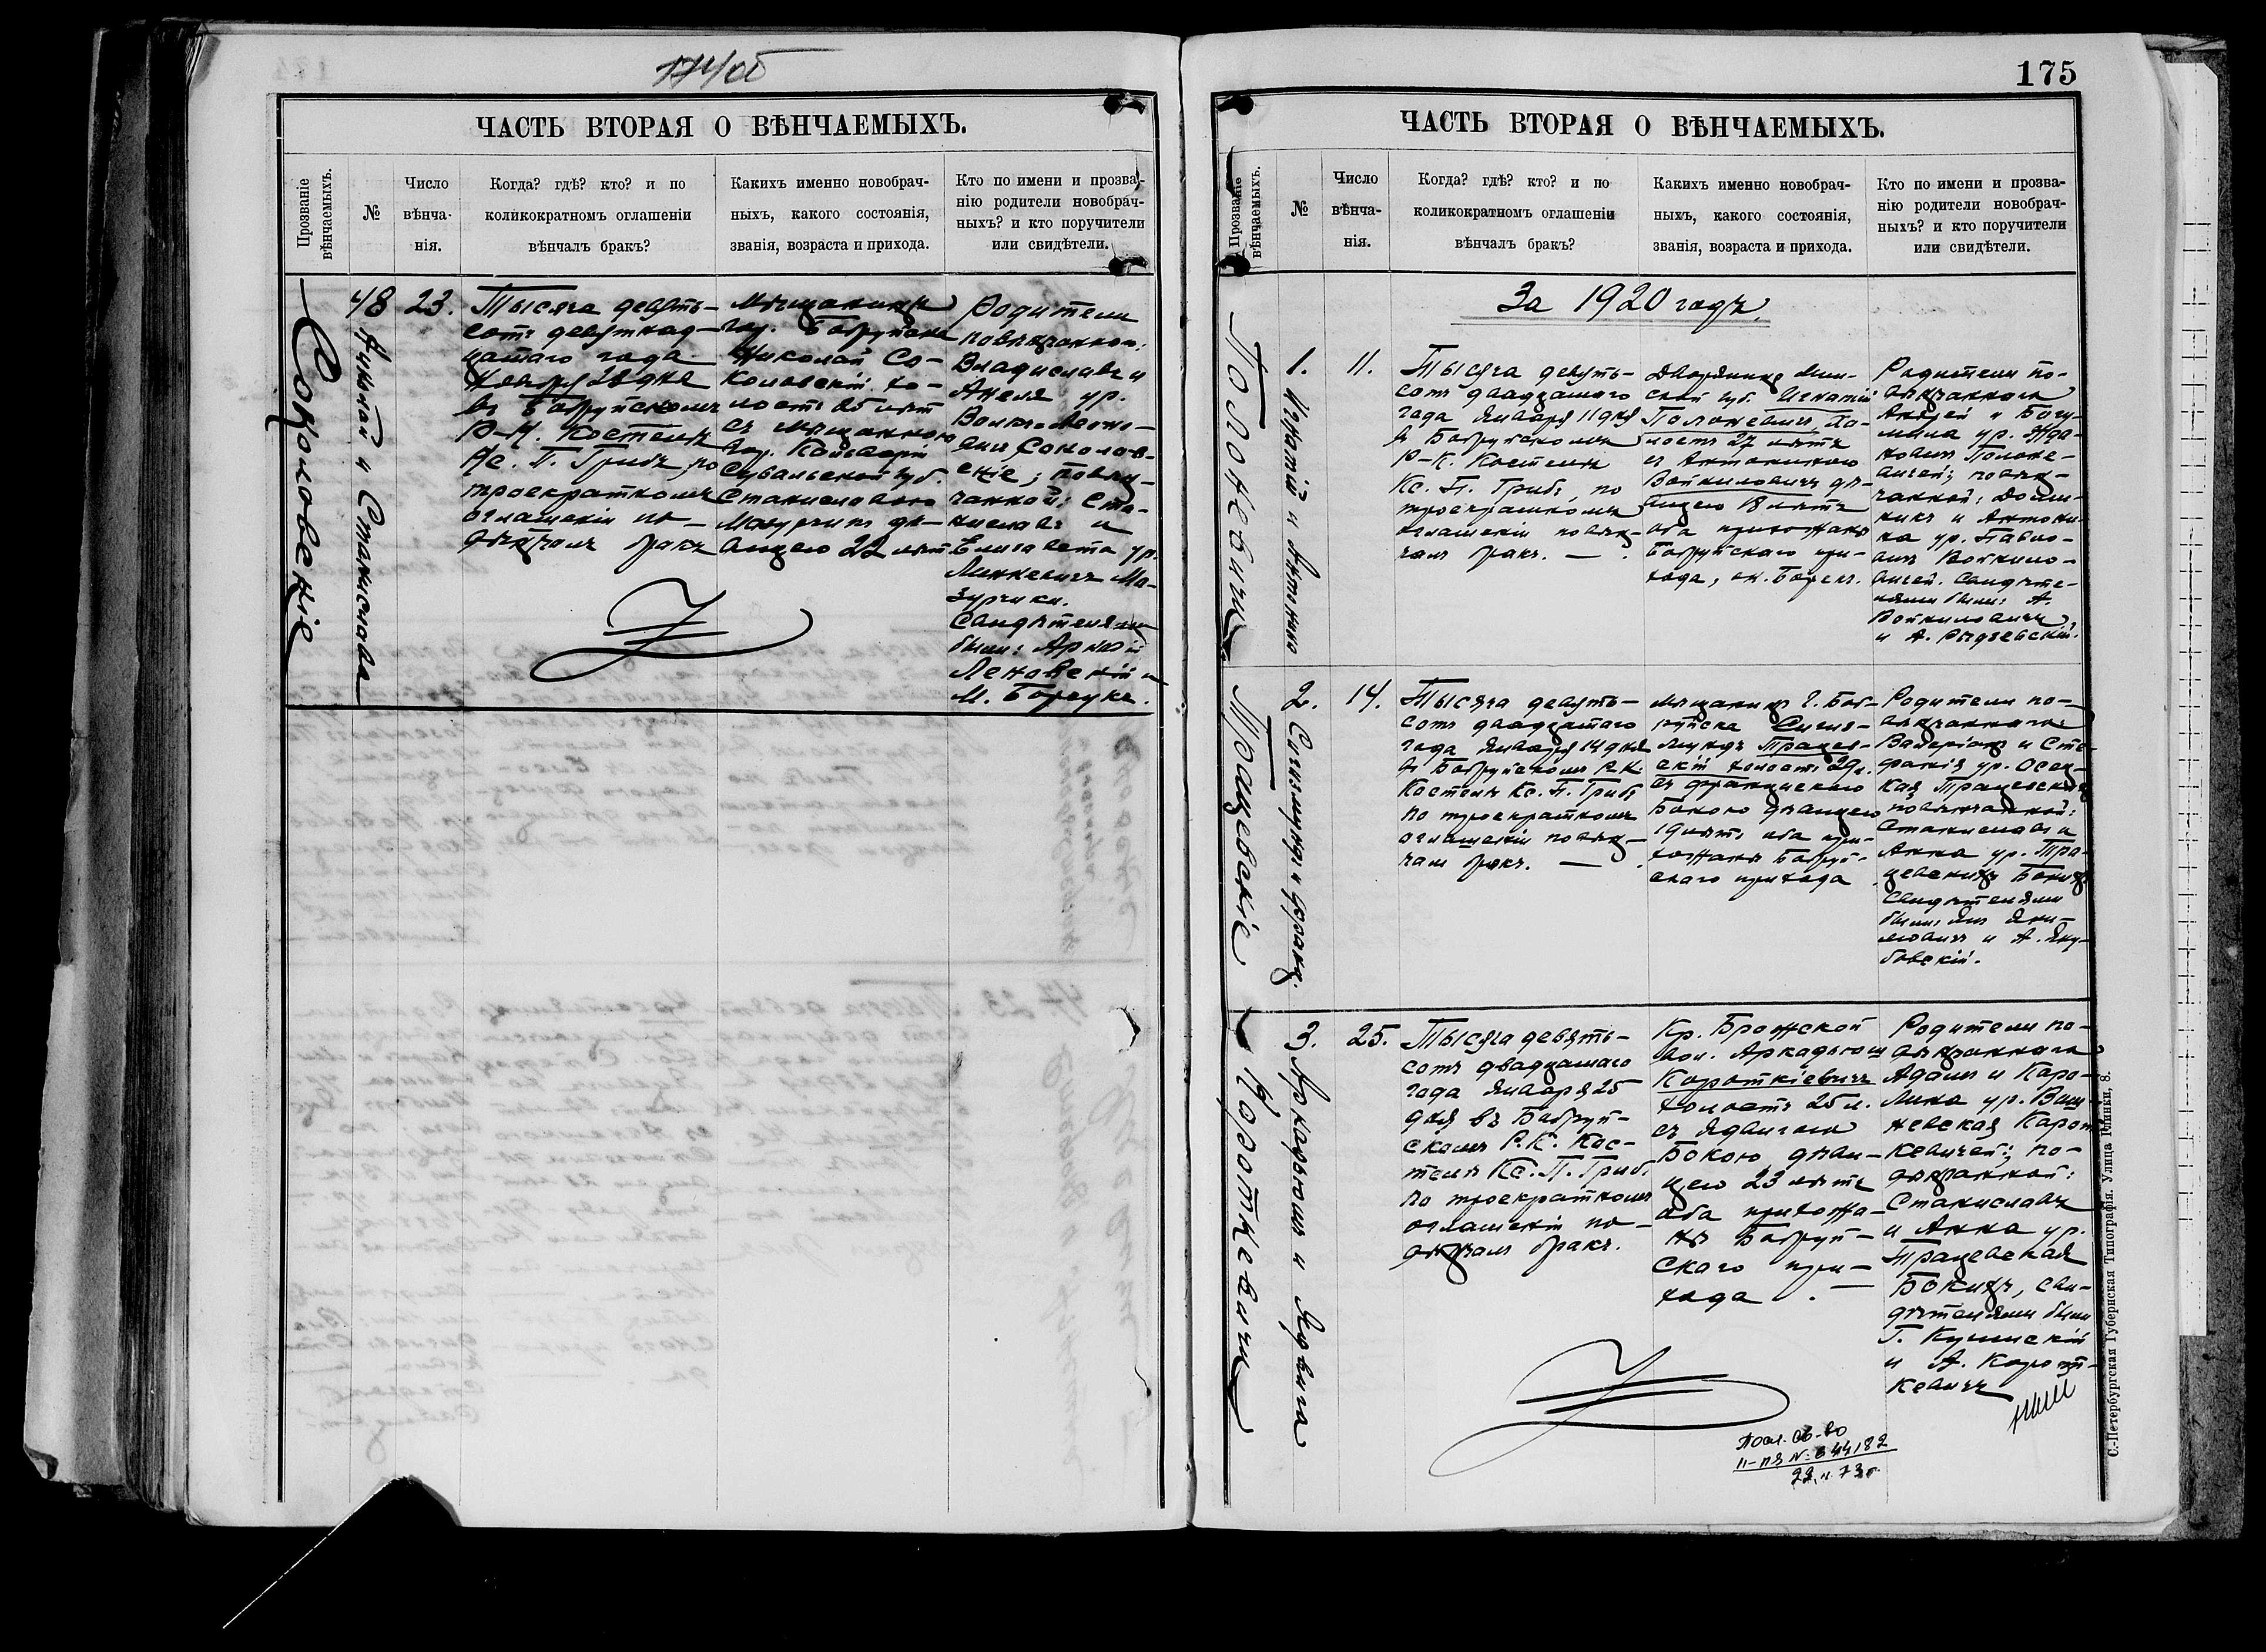 174об
ЧАСТЬ ВТОРАЯ О ВѢНЧАЕМЫХЪ.
Прозваніе вѣнчаемыхъ.
№
Число
вѣнча-
нія.
Когда? гдѣ? кто? и по
коликократномъ оглашеніи
вѣнчалъ бракъ?
Какихъ именно новобрач-
ныхъ, какого состоянія,
званія, возраста и прихода.
Кто по имени и прозва-
нію родители новобрач-
ныхъ? и кто поручители
или свидѣтели.
Соколовскіе
48
Николай и Станислава
23.
Тысяча девять-
сотъ девятнад-
цатаго года
Ноября 23 дня
въ Бобруйскомъ
Р-К. Костелѣ
Кс. П. Грибъ, по
троекратномъ
оглашеніи по-
вѣнчалъ бракъ
Мѣщанинъ
гор. Бобруйска
Николай Со-
коловскій хо-
лостъ 25 лѣтъ
съ мѣщанкою
гор. Кальваріи
Сувальской губ.
Станиславою
Мазурчикъ дѣ-
вицею 22 лѣтъ
Родители
повѣнчаннаго:
Владиславъ и
Анеля ур.
Соколов-
скіе; повѣн-
чанной: Ста-
ниславъ и
Елизавета ур.
Линкевичъ Ма-
зурчики.
Свидѣтелями
были: Аркадій
Леновскій и
М. Борщукъ.
175
ЧАСТЬ ВТОРАЯ О ВѢНЧАЕМЫХЪ.
Прозваніе вѣнчаемыхъ.
№
Число
вѣнча-
нія.
Когда? гдѣ? кто? и по
коликократномъ оглашеніи
вѣнчалъ бракъ?
Какихъ именно новобрач-
ныхъ, какого состоянія,
званія, возраста и прихода.
Кто по имени и прозва-
нію родители новобрач-
ныхъ? и кто поручители
или свидѣтели.
За 1920 годъ.
Полоневичи
1.
Игнатій и Антонина
11.
Тысяча девять-
сотъ двадцатаго
года Января 11 дня
въ Бобруйскомъ
Р-К. Костелѣ
Кс. П. Грибъ, по
троекратномъ
оглашеніи повѣн-
чалъ бракъ.
Дворянинъ Мин-
ской губ. Игнатій
Полоневичъ хо-
лостъ 27 лѣтъ
съ Антониною
Войниловичъ дѣ-
вицею 18 лѣтъ
оба прихожане
Бобруйскаго при-
хода, ок. Борекъ.
Родители по-
вѣнчаннаго
Андрей и Богу-
мила ур. Жда-
новичъ Полоне-
вичей; повѣн-
чанной: Доми-
никъ и Антони-
на ур. Павло-
вичъ Войнило-
вичей. Свидѣте-
лями были: А.
Войниловичъ
и А. Рыдзевскій.
Трацевскіе
2.
Сигизмундъ и Франц.
14.
Тысяча девять-
сотъ двадцатаго
года Января 14 дня
въ Бобруйскомъ Р.К.
Костелѣ Кс. П. Грибъ
по троекратномъ
оглашеніи повѣн-
чалъ бракъ.
Мѣщанинъ г. Боб-
руйска Сигиз-
мундъ Трацев-
скій холостъ 29 л.
съ Францискою
Бокою дѣвицею
19 лѣтъ оба при-
хожане Бобруй-
скаго прихода
Родители по-
вѣнчаннаго:
Валеріанъ и Сте-
фанія ур. Осец-
кая Трацевскихъ
повѣнчанной:
Станиславъ и
Анна ур. Тра-
цевскихъ Бокихъ
Свидѣтелями
были: Янъ Яни-
ловичъ и А. Яку-
бовскій.
Короткевичи
3.
Аркадьюшъ и Ядвига
25.
Тысяча девять-
сотъ двадцатаго
года Января 25
дня въ Бобруй-
скомъ Р.К. Кос-
телѣ Кс. П. Грибъ
по троекратномъ
оглашеніи по-
вѣнчалъ бракъ.
Кр. Брожской
вол. Аркадьюш
Короткіевичъ
холостъ 25 л.
съ Ядвигою
Бокою, дѣви-
цею 23 лѣтъ
оба прихожа-
не Бобруй-
скаго при-
хода.
Родители по-
вѣнчаннаго
Адамъ и Каро-
лина ур. Виш-
невская Корот-
кевичей; по-
вѣнчанной:
Станиславъ
и Анна ур.
Трацевская
Бокихъ, сви-
дѣтелями были
Г. Кулинскій
и А. Корот-
кевичъ
Посл. св-во
II-ПЯ № 344182
23.II.73г.
С.-Петербургская Губернская Типографія. Улица Глинки, 8.